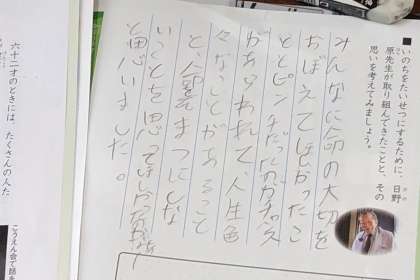 ■いのちをたいせつにするために、日野
原先生が取り組んできたことと、その
思いを考えてみましょう。
みんなに命の大切を
おぼえてほしかったこ
ととピンチだったのがチャンス
があらわれて、人生色
々なことがあること
と、命をまつにしな
いことを思ってほしかったかな
と思いました。
六十二才のときには、たくさんの人た
こうえん会で話を